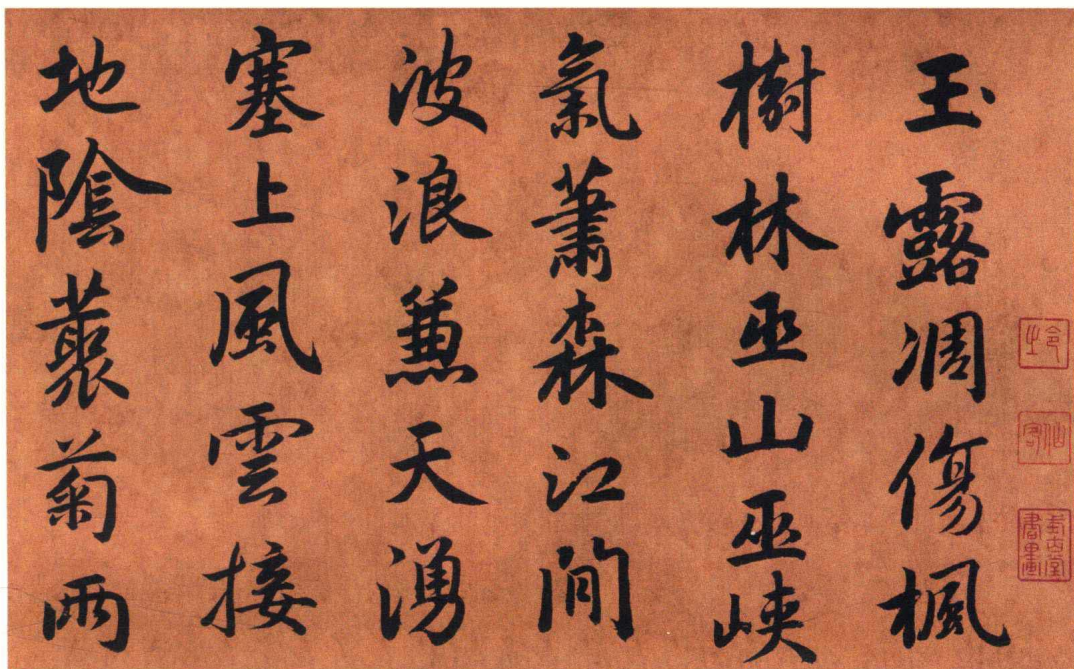 玉露凋傷楓
樹林巫山巫峽
氣蕭森江間
波浪兼天湧
塞上風雲接
地陰藂菊兩